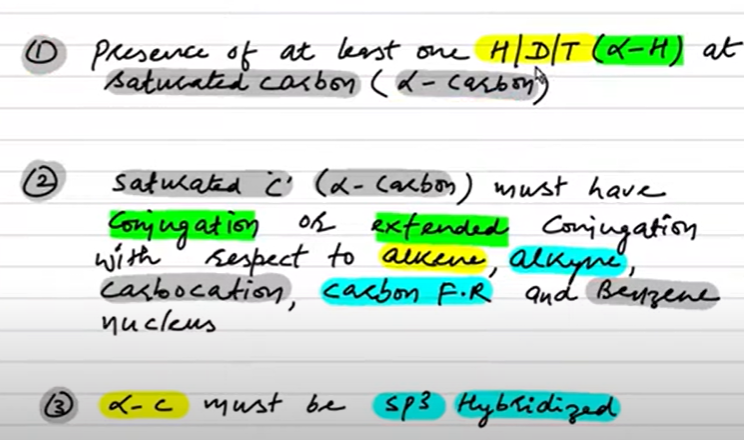 ① Presence of at least one H/D/T (α-H) at
saturated carbon (α-carbon)
② saturated 'C' (α-carbon) must have
Conjugation or extended conjugation
with respect to alkene, alkyne,
Carbocation, Carbon F.R and Benzene
nucleus
③ α-C must be sp3 Hybridized